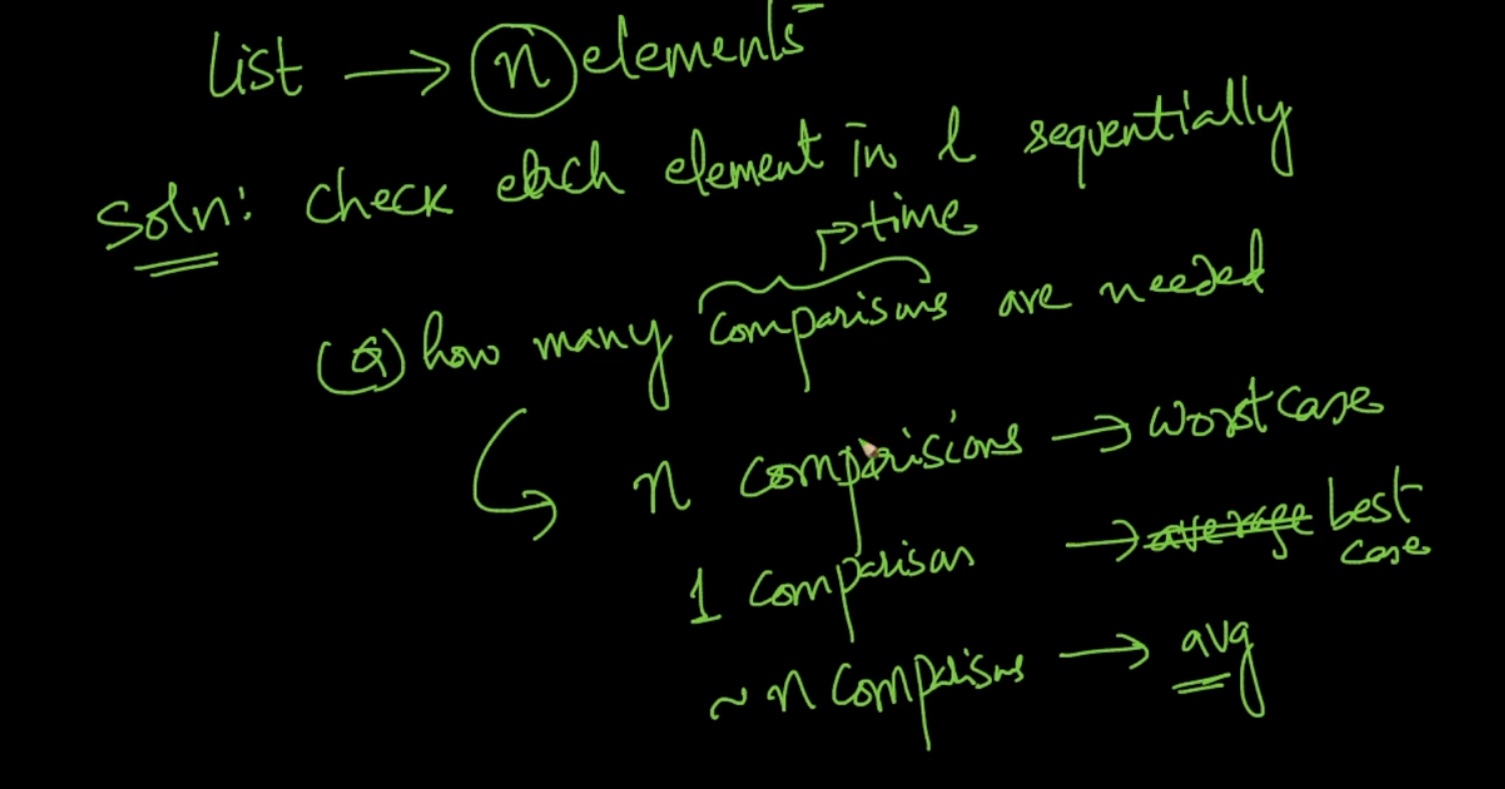 List → n elements
Soln: check each element in l sequentially
→ time
(Q) how many comparisons are needed
n comparisions → worst case
1 comparison → average best case
~ n comparisons → avg